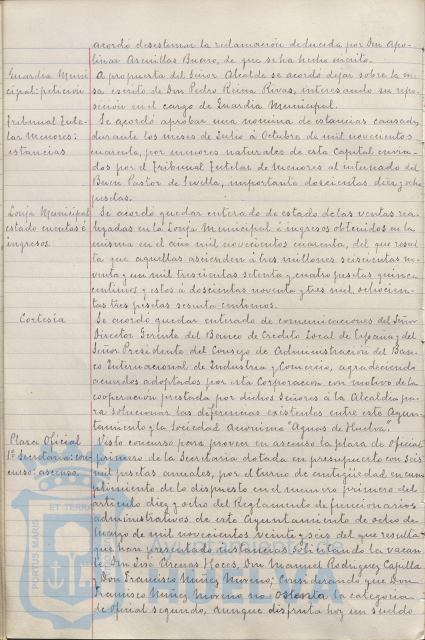 acordó desestimar la reclamación deducida por Don Apo-
linar Arenillas Bueno, de que se ha hecho mérito.
Guardia Muni
cipal: petición
A propuesta del Señor Alcalde se acordó dejar sobre la me-
sa escrito de Don Pedro Reina Rivas, interesando su repo-
sición en el cargo de Guardia Municipal.
Tribunal Tute-
lar Menores:
estancias
Se acordó aprobar una nómina de estancias causadas,
durante los meses de Julio á Octubre de mil novecientos
cuarenta, por menores naturales de esta Capital envia-
dos por el Tribunal Tutelar de Menores al internado del
Buen Pastor de Sevilla, importante doscientas diez y ocho
pesetas.
Lonja Municipal
estado cuentas é
ingresos.
Se acordó quedar enterado de estado de las ventas rea-
lizadas en la Lonja Municipal é ingresos obtenidos en la
misma en el año mil novecientos cuarenta, del que resul
ta que aquellas ascienden á tres millones seiscientas no-
venta y un mil trescientas setenta y cuatro pesetas quince
centimos y estos á doscientas noventa y tres mil ochocien-
tas tres pesetas sesenta centimos.
Cortesía
Se acordó quedar enterado de comunicaciones del Señor
Director Gerente del Banco de Crédito Local de España y del
Señor Presidente del Consejo de Administración del Ban-
co Internacional de Industria y Comercio, agradeciendo
acuerdos adoptados por esta Corporación con motivo de la
cooperación prestada por dichos Señores á la Alcaldía pa-
ra solucionar las diferencias existentes entre este Ayun-
tamiento y la Sociedad Anónima "Aguas de Huelva".
Plaza Oficial
1º Secretaría: con
curso: ascenso
Visto concurso para proveer en ascenso la plaza de Oficial
primero de la Secretaría dotada en presupuesto con seis
mil pesetas anuales, por el turno de antigüedad en cum
plimiento de lo dispuesto en el número primero del
artículo diez y ocho del Reglamento de funcionarios
administrativos de este Ayuntamiento de ocho de
Mayo de mil novecientos veinte y seis del que resulta
que han presentado instancias solicitando la vacan
te Don Arenas Hoces, Don Manuel Rodriguez Capilla
Don Francisco Nuñez Moreno; Considerando que Don
Francisco Nuñez Moreno no ostenta la categoría
de Oficial segundo, aunque disfruta hoy un sueldo
PORTUS MARIS ET TERRAE